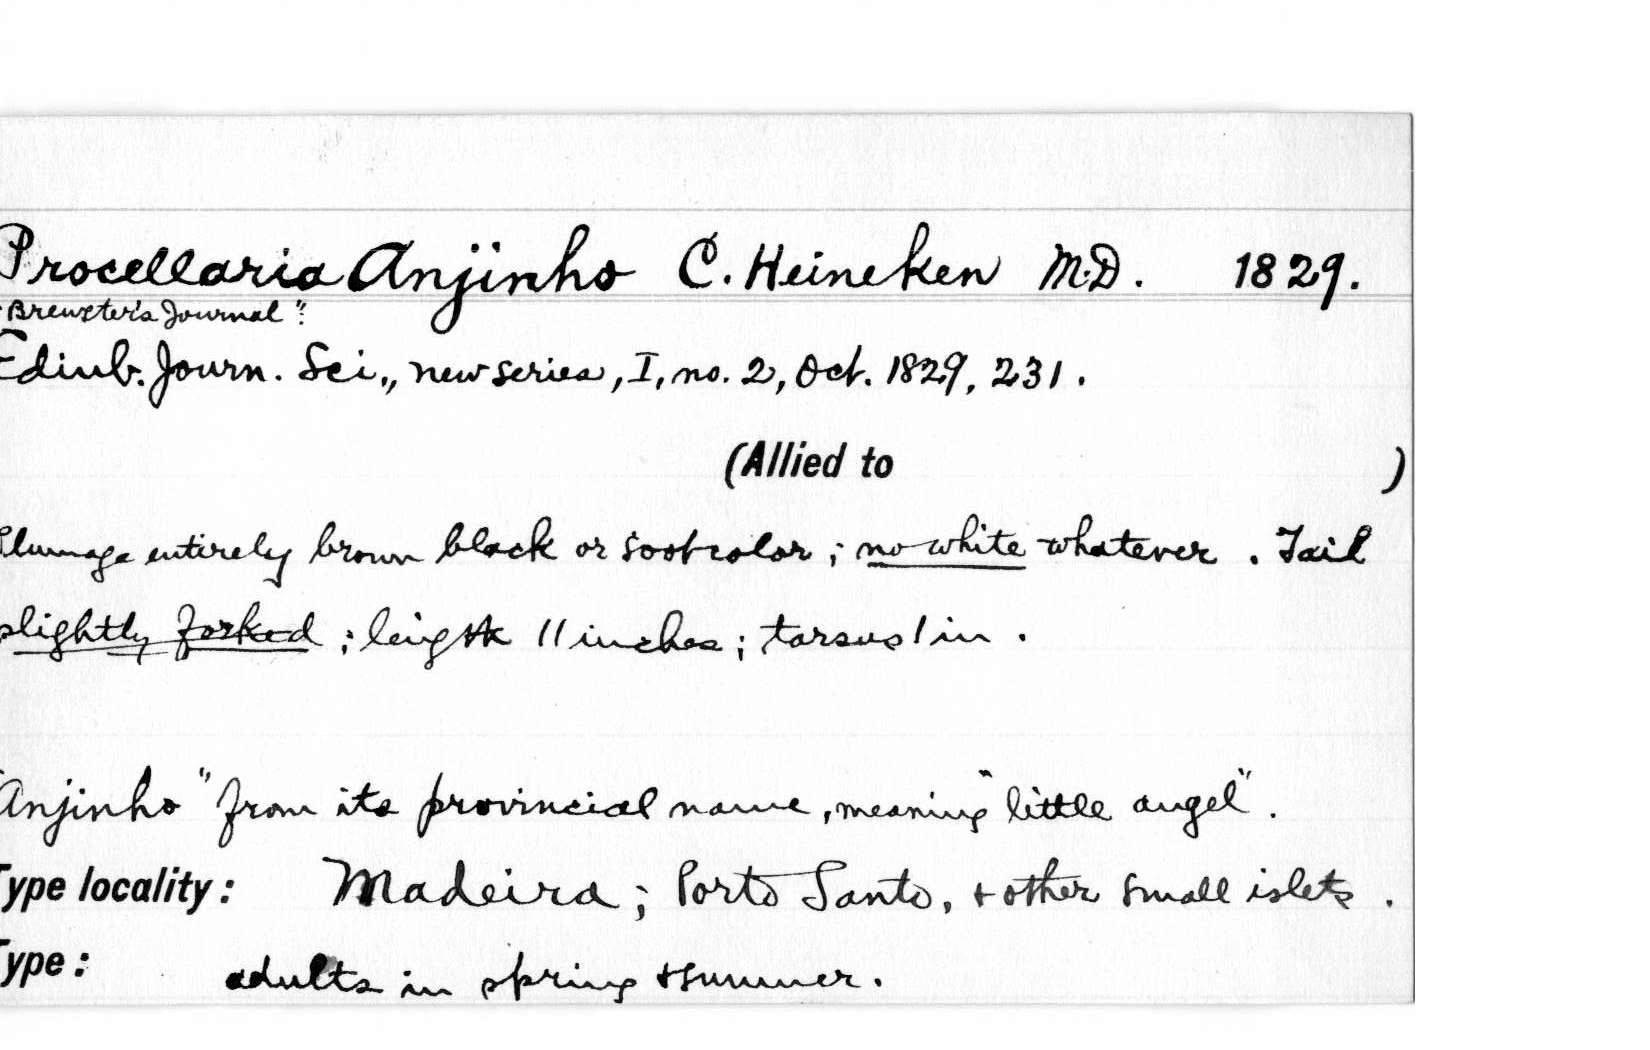 Procellaria Anjinho C. Heineken M.D. 1829.
"Brewster's Journal":
Edinb. Journ. Sci., new series, I, no. 2, Oct. 1829, 231.
(Allied to )
Plumage entirely brown black or soot color; no white whatever. Tail
slightly forked; length 11 inches; tarsus 1 in.
Anjinho" from its provincial name, meaning "little angel".
Type locality: Madeira; Porto Santo, + other small islets.
Type: adults in spring + summer.